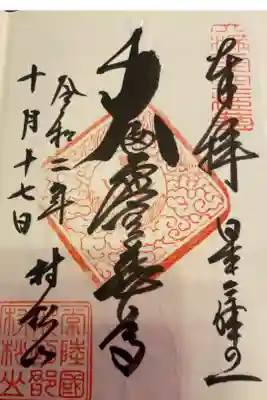 奉拝 日本三体の一
大満虚空蔵尊
令和二年 村松山
十月十七日
常陸國
村松山